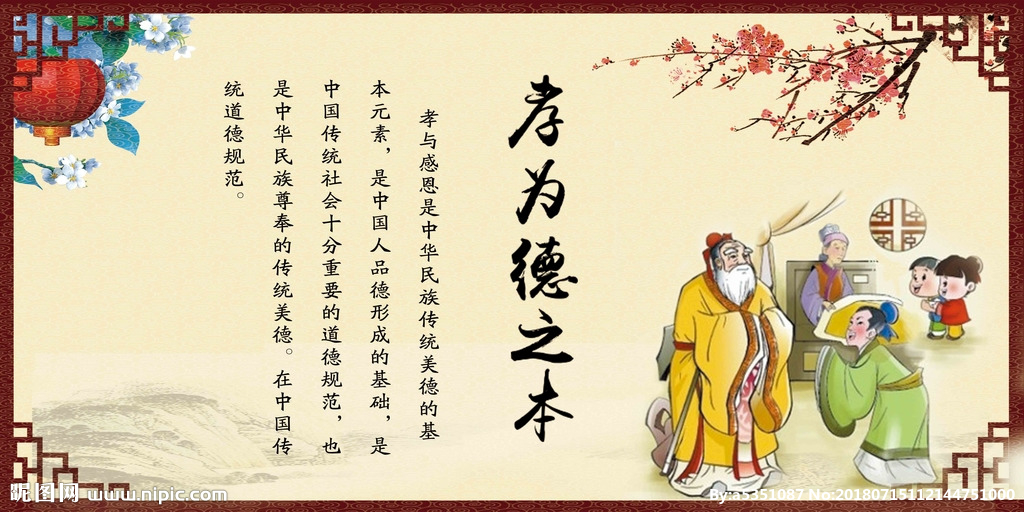 孝为德之本
孝与感恩是中华民族传统美德的基
本元素，是中国人品德形成的基础，是
中国传统社会十分重要的道德规范，也
是中华民族尊奉的传统美德。在中国传
统道德规范。
昵图网 www.nipic.com
By:a5351087 No:20180715112144751000